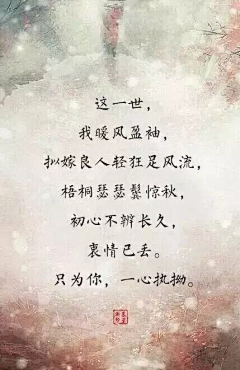 这一世，
我暖风盈袖，
拟嫁良人轻狂足风流，
梧桐瑟瑟鬓惊秋，
初心不辨长久，
衷情已丢。
只为你，一心执拗。